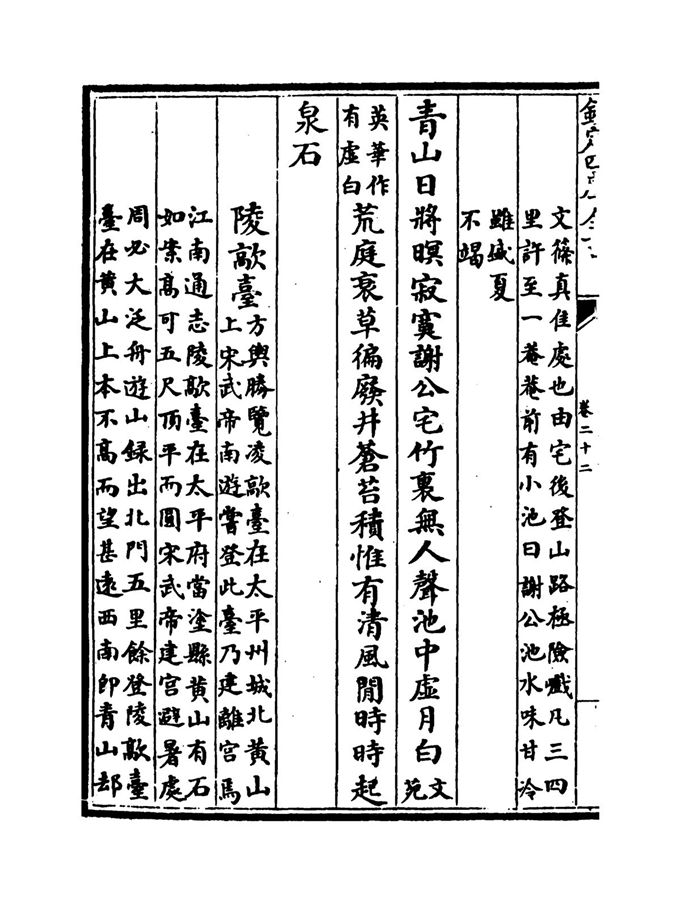 欽定四庫全書
卷二十二
文篠真佳處也由宅後登山路極險巇凡三四
里許至一菴菴前有小池曰謝公池水味甘冷
雖盛夏
不竭
青山日將暝寂寞謝公宅竹裏無人聲池中虛月白文
苑
英華作
有虛白荒庭衰草徧廢井蒼苔積惟有清風閒時時起
泉石
陵歊臺方輿勝覽凌歊臺在太平州城北黄山
上宋武帝南遊嘗登此臺乃建離宫焉
江南通志陵歊臺在太平府當塗縣黄山有石
如案高可五尺頂平而圓宋武帝建宫避暑處
周必大泛舟遊山録出北門五里餘登陵歊臺
臺在黄山上本不高而望甚遠西南即青山却